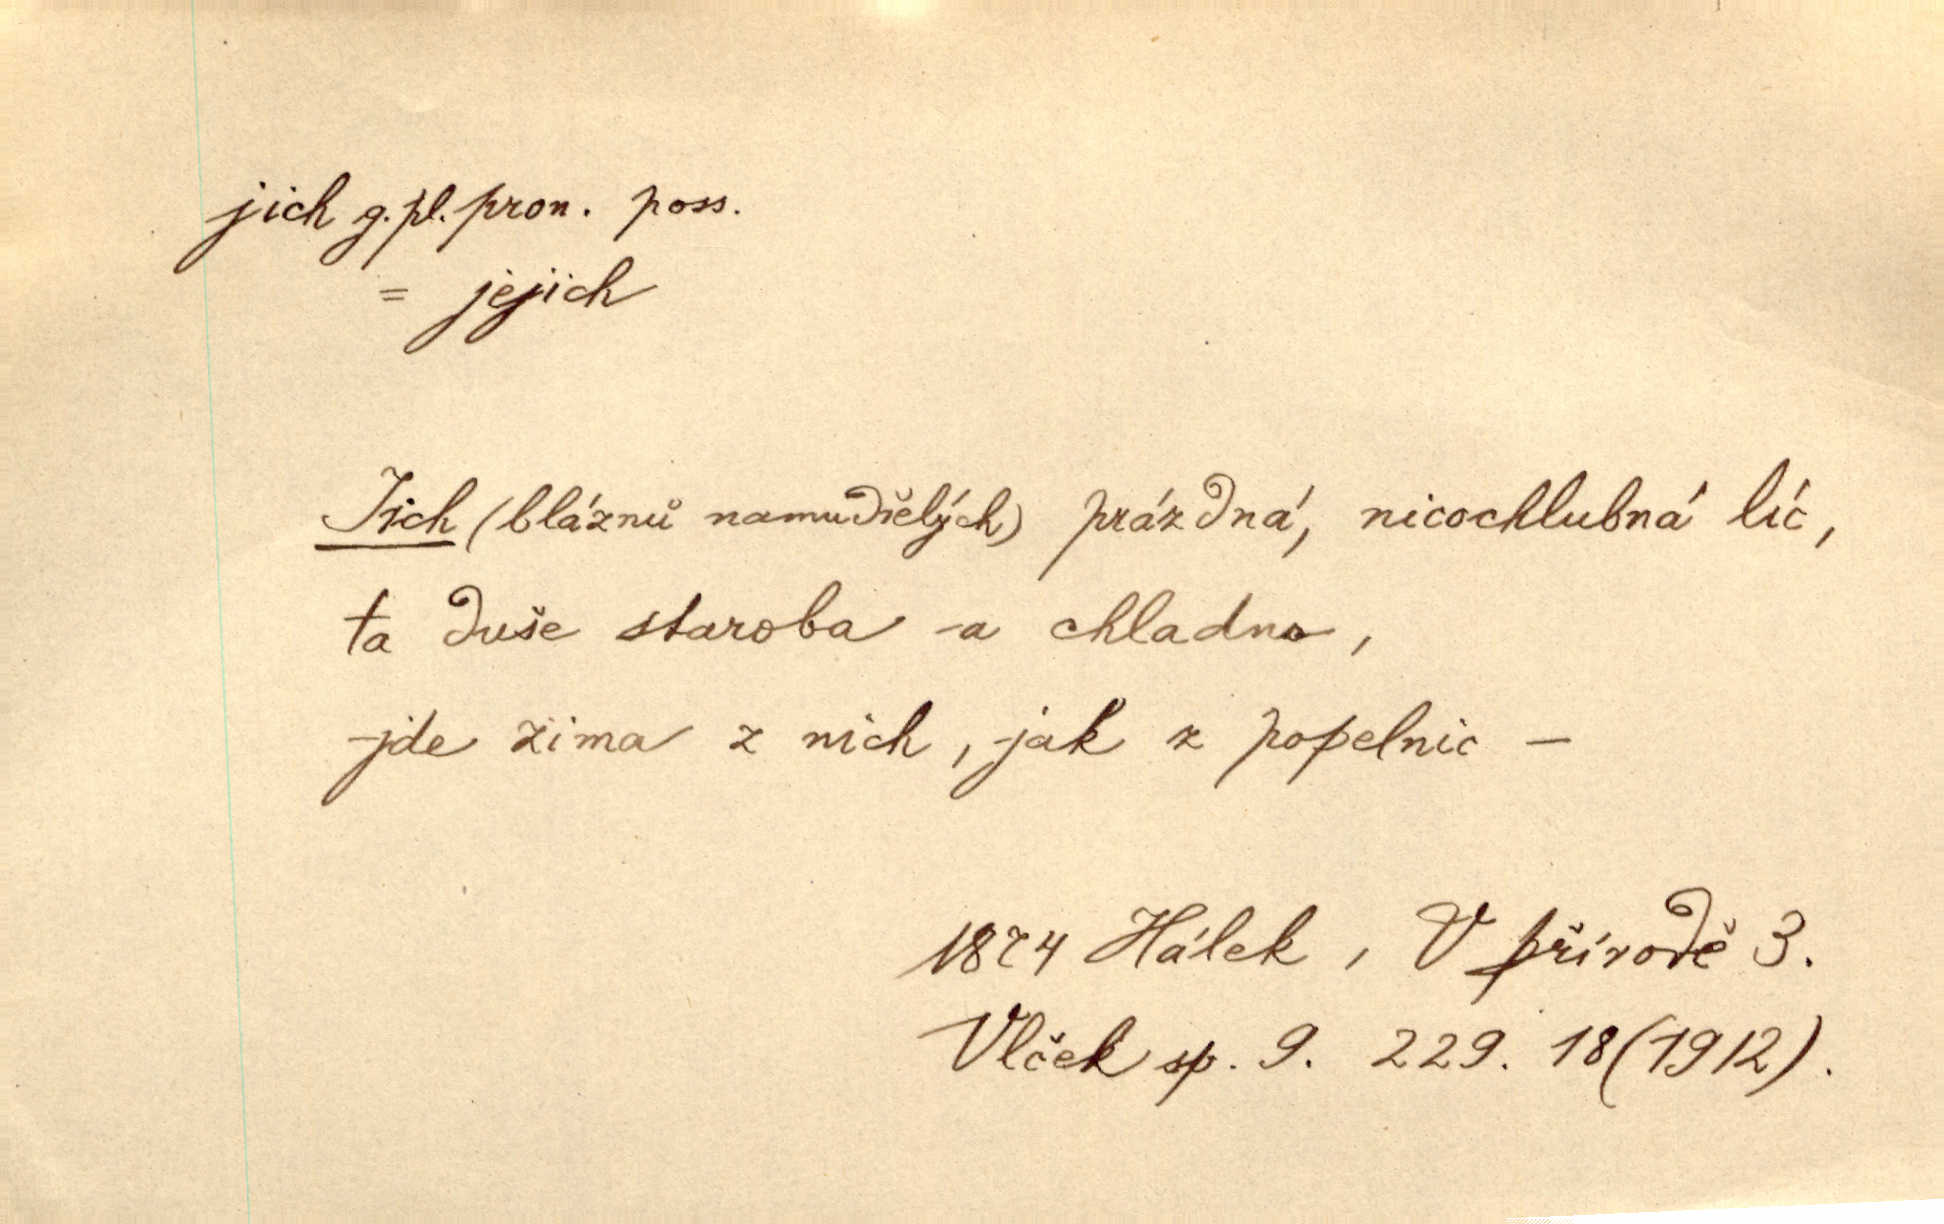 jich g. pl. pron. poss.
= jejich
Jich (bláznů namudřelých) prázdná, nicochlubná líc,
ta duše staroba a chladno,
jde zima z nich, jak z popelnic –
1874 Hálek, V přírodě 3.
Vlček sp. 9. 229. 18 (1912).